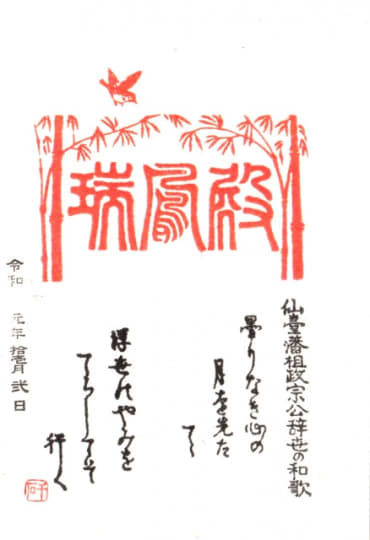 瑞鳳殿
仙臺藩祖政宗公辞世の和歌
曇りなき心の
月を先た
てゝ
浮世のやみを
てらしてそ
行く
令和 元年 拾壱月 弐日